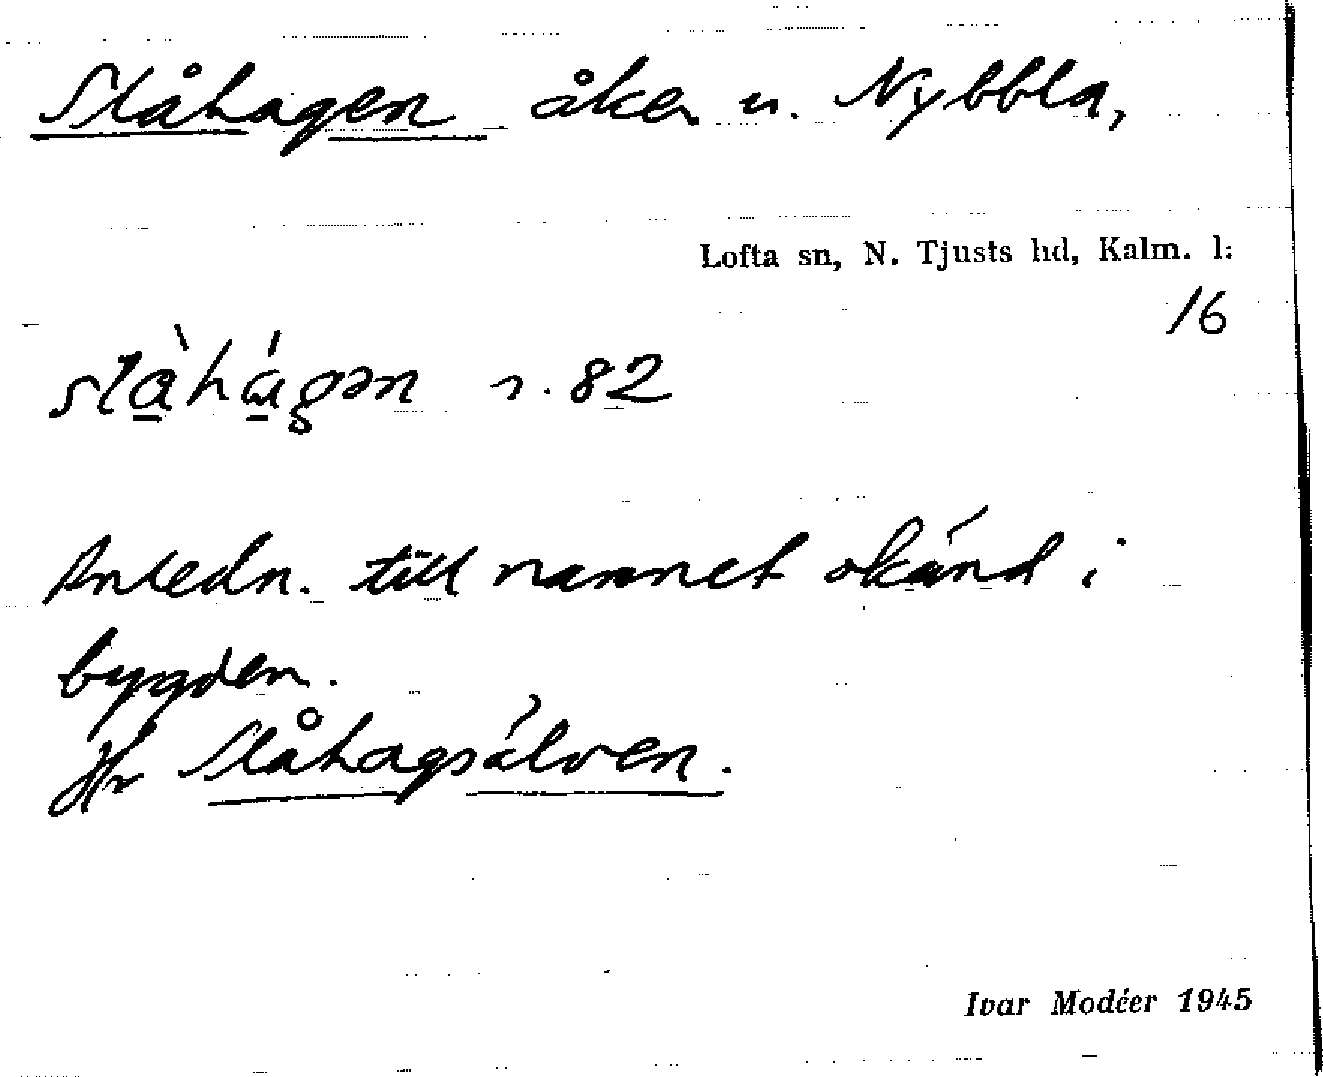 Slåhagen åker u. Nybbla,
Lofta sn, N. Tjusts hd, Kalm. l:
16
slàhágən r. 82
Anledn. till namnet okänd i
bygden.
Jfr Slåhagsälven.
Ivar Modéer 1945